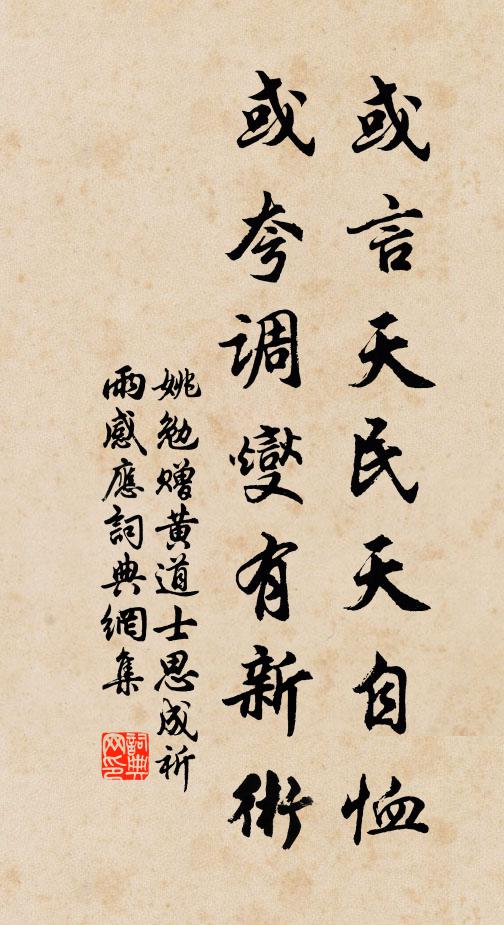 或言天民天自恤
或夸調燮有新術
姚勉贈黃道士思成祈
雨感應詞典網集
詞典網印